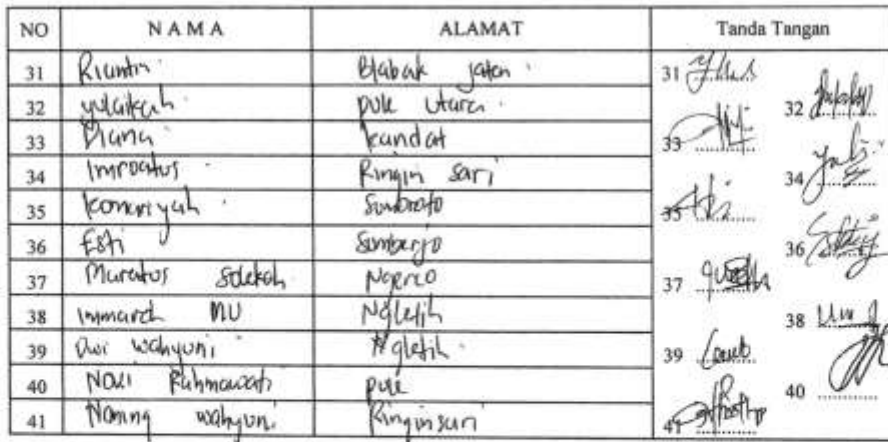 NO NAMA ALAMAT Tanda Tangan
31 Riantin Blabak Jaten 31
32 yulaikah pule utara 32
33 Diana kandat 33
34 Imroatus Ringin sari 34
35 komariyah 35
36 Esti Sumberjo 36
37 Solekah Ngreco 37
38 Ngletih 38
39 Dwi wahyuni Ngletih 39
40 Novi Rahmawati pule 40
41 Naning wahyuni Ringinsari 41